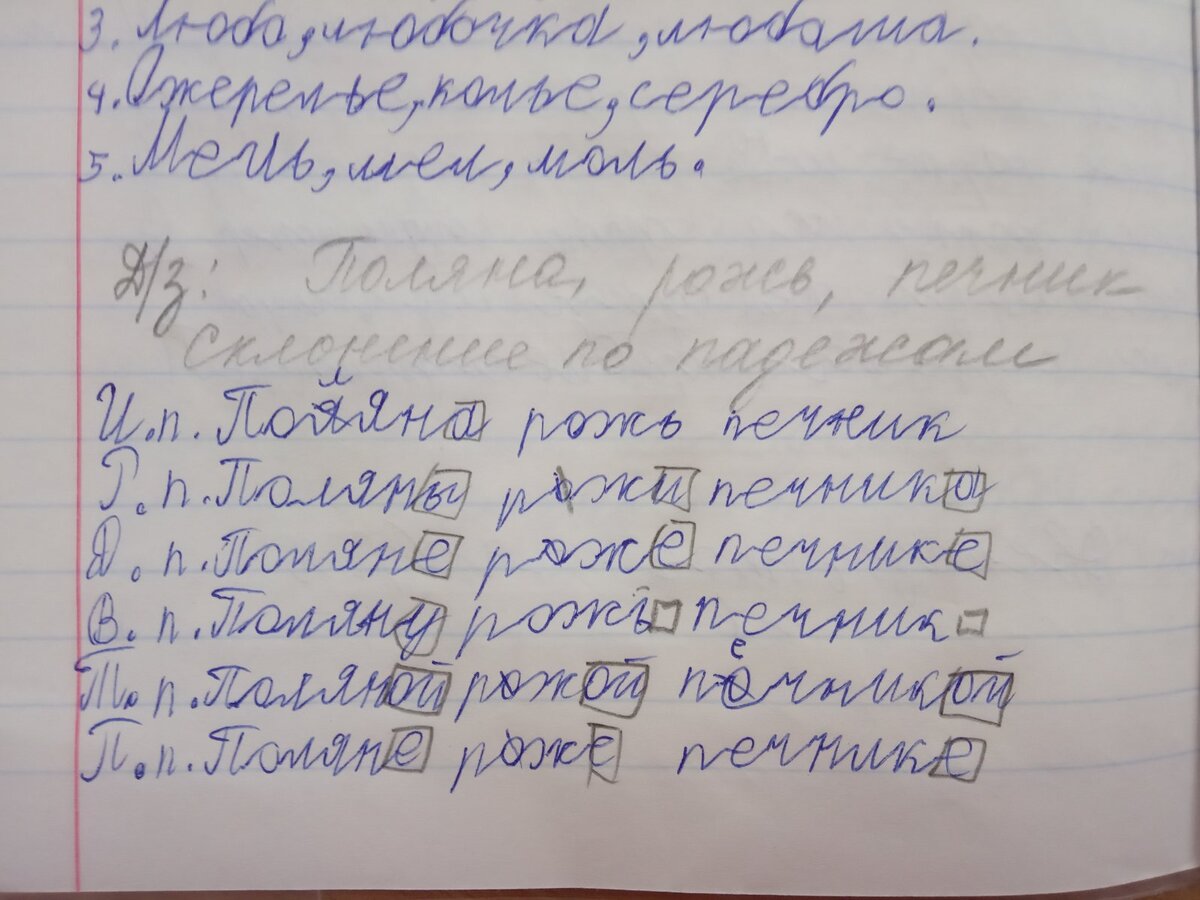 3. Люба, любочка, любаша.
4. Ожерелье, колье, серебро.
5. Мечь, мел, моль.
Д/з: Поляна, рожь, печник
склонение по падежам
И.п. Поляна рожь печник
Р.п. Поляны рожи печника
Д.п. Поляне роже печнике
В.п. Поляну рожь печник
Т.п. Поляной рожой печникой
П.п. Поляне роже печнике